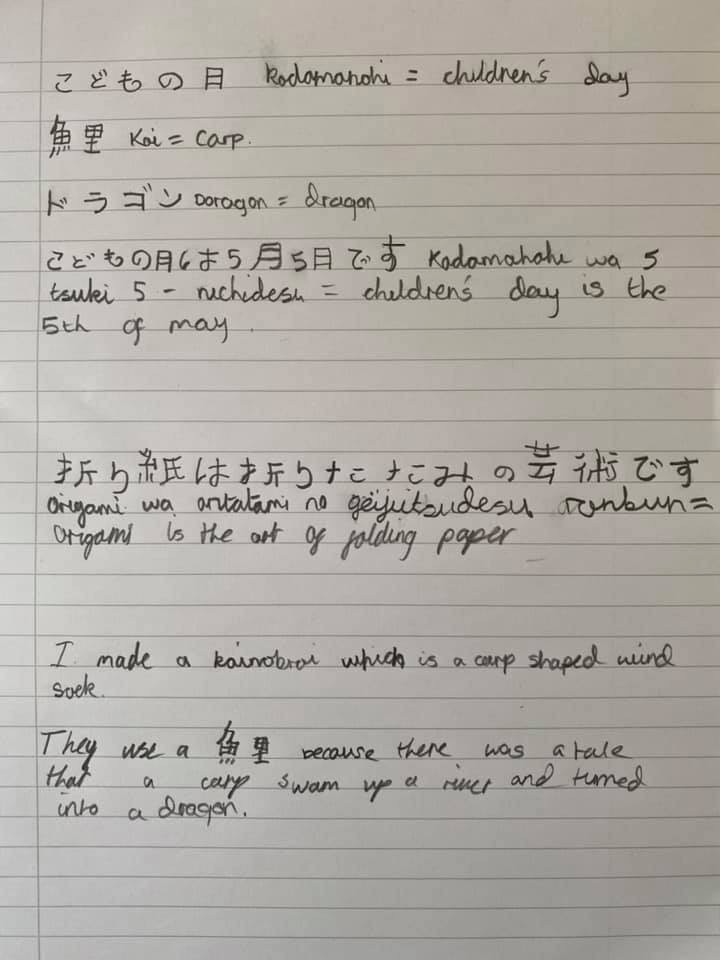 こどもの日 Kodomanohi = children's day
魚里 Koi = Carp.
ドラゴン Doragon = dragon
こどもの日は5月5日です Kodamahohi wa 5
tsuki 5 - nichidesu = children's day is the
5th of may.
折り紙は折りたたみの芸術です
origami wa oritatami no geijutsudesu ronbun =
Origami is the art of folding paper
I made a koinobroi which is a carp shaped wind
sock.
They use a 魚里 because there was a tale
that a carp swam up a river and turned
into a dragon.